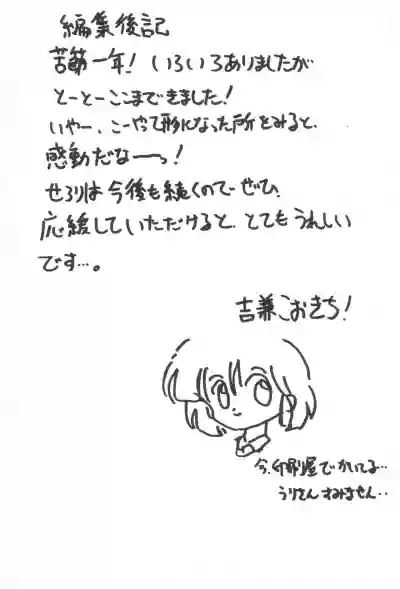 編集後記
苦節一年! いろいろありましたが
とーとーここまできました!
いやー、こーやって形になった所をみると、
感動だなーっ!
せろりは今後も続くので ぜひ
応援していただけると、とてもうれしい
です…。
吉兼こおきち!
今、印刷屋でかいてる…
うりさんすみません‥